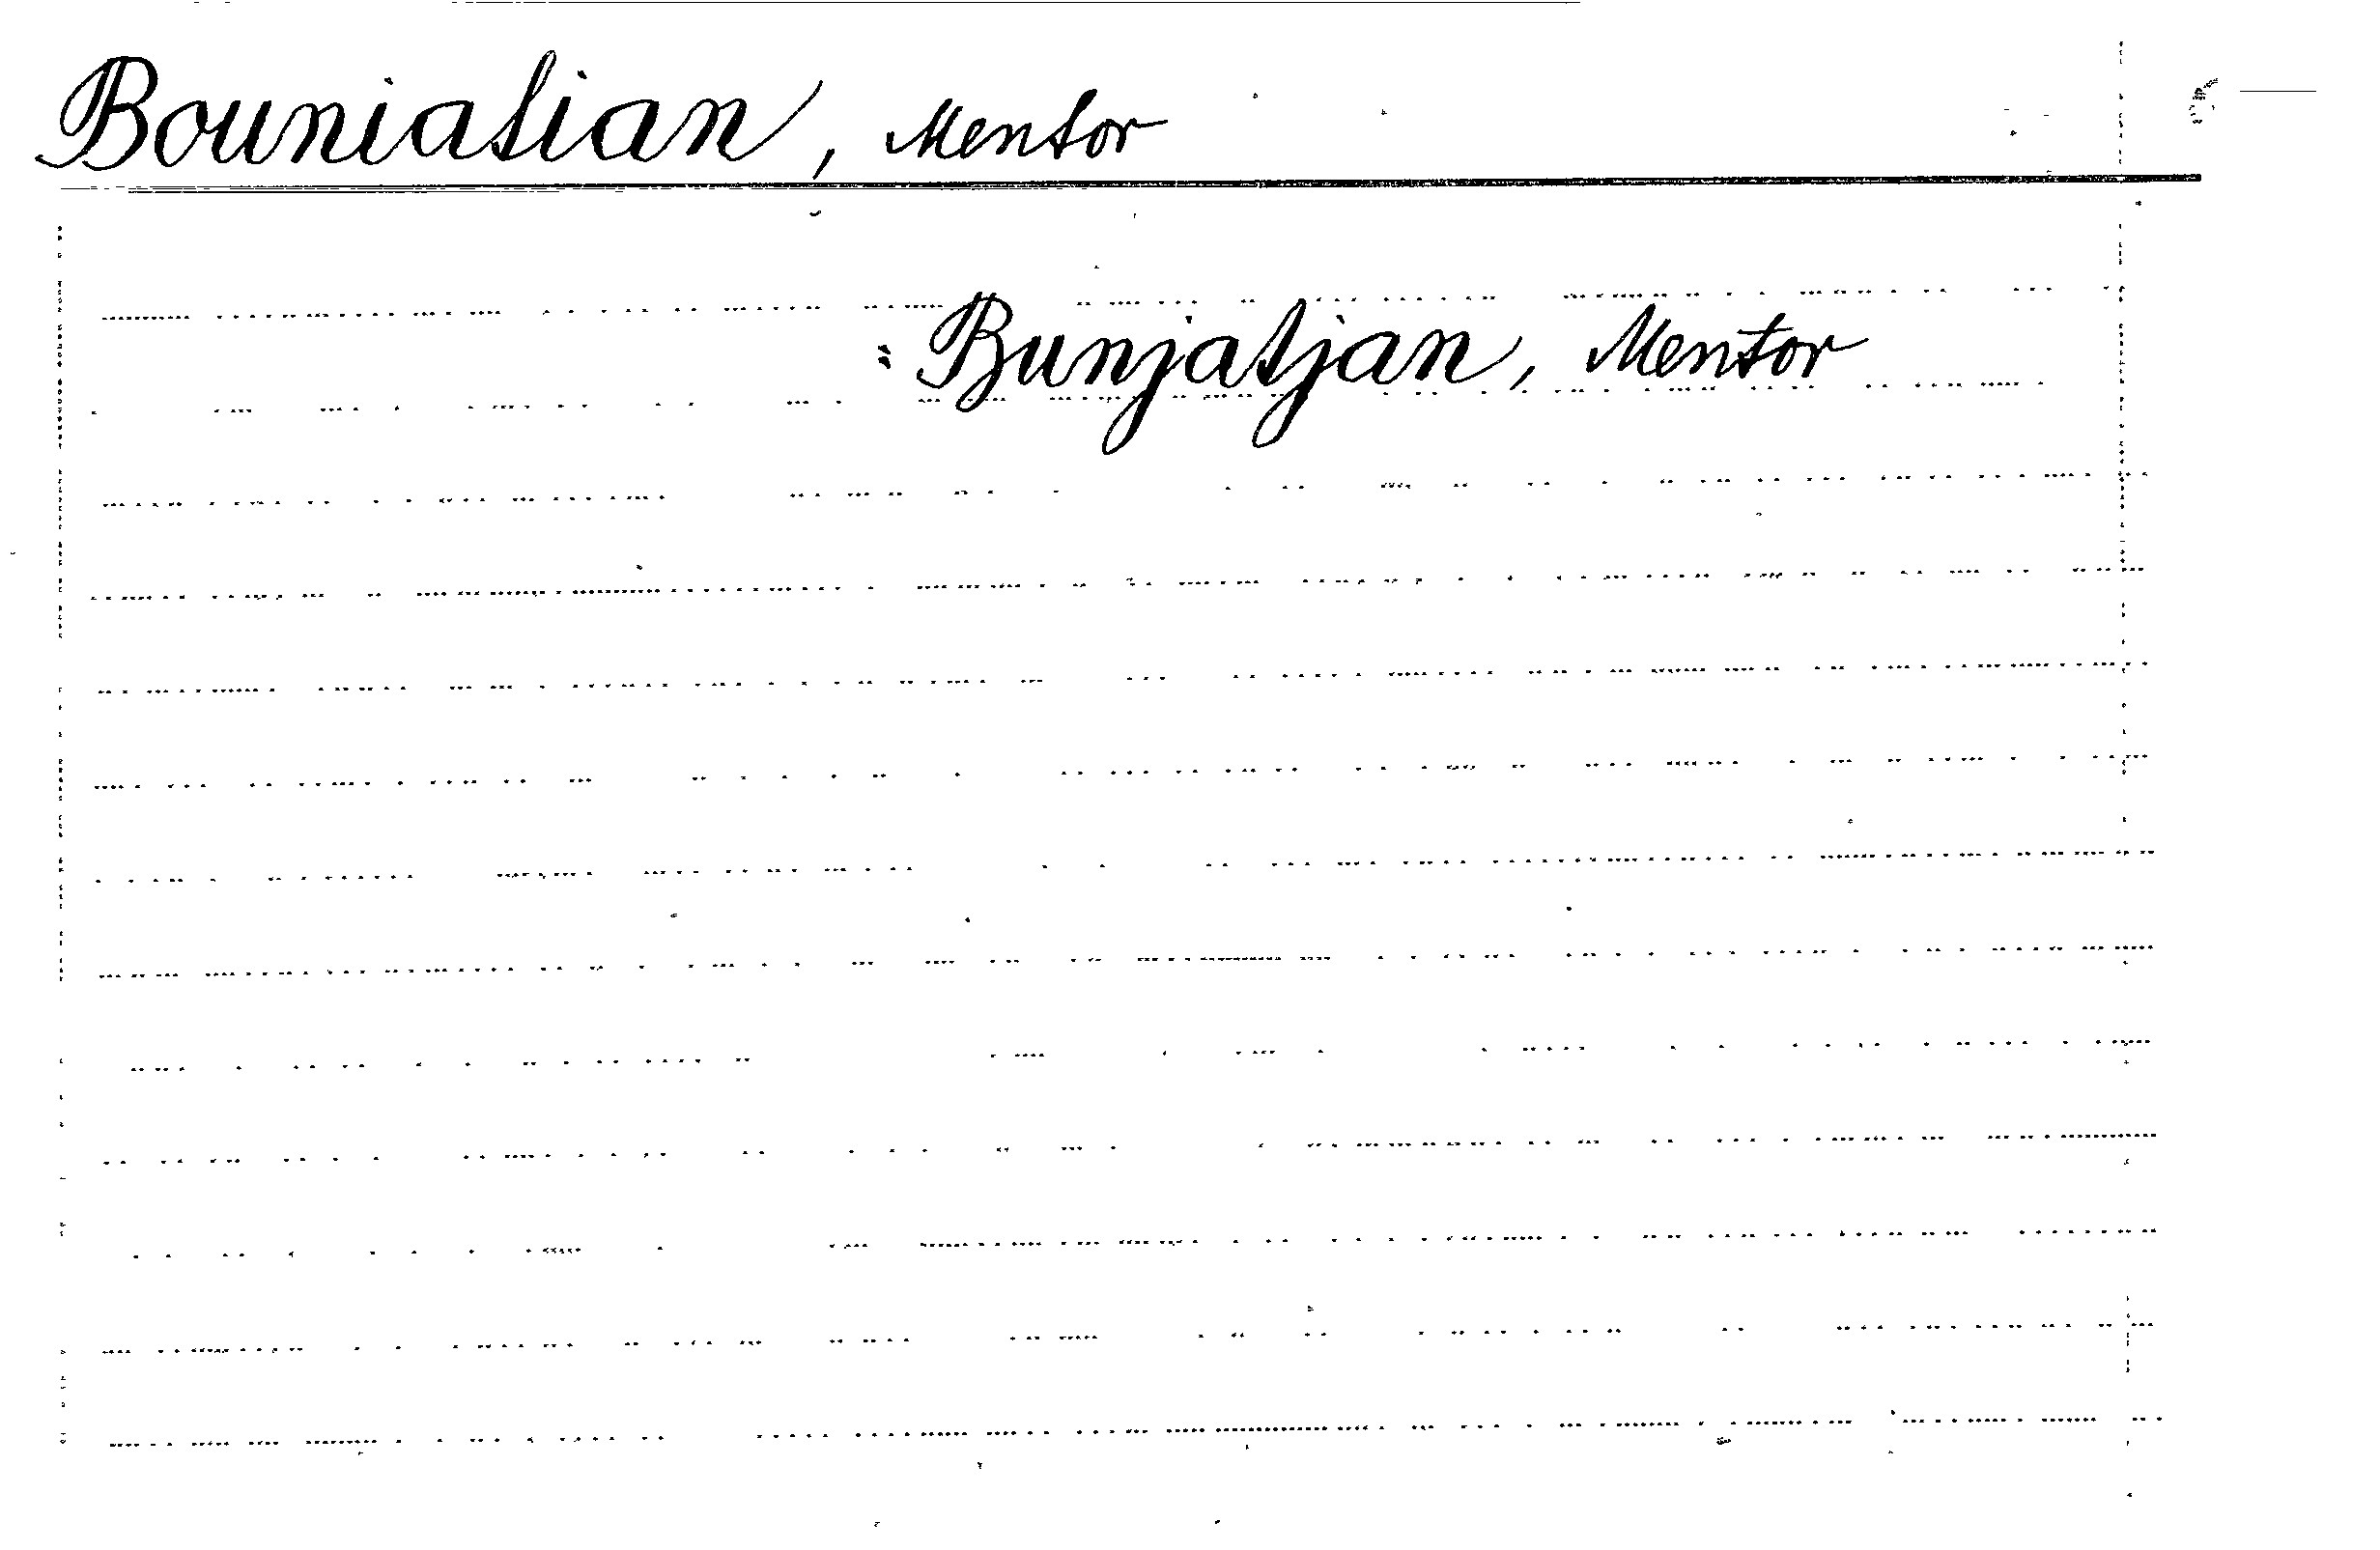 Bouniatian, Mentor
= Bunjatjan, Mentor